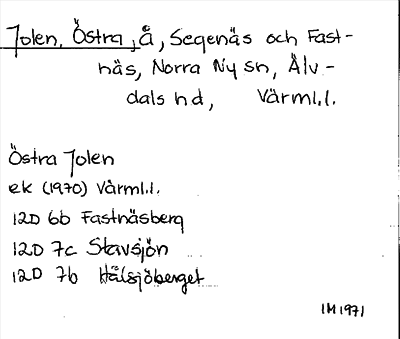 Jolen, Östra, å, Segenäs och Fast-
näs, Norra Ny sn, Älv-
dals hd, Värml.l.
Östra Jolen
ek (1970) Värml.l.
12D 6b Fastnäsberg
12D 7c Stavsjön
12D 7b Hälsjöberget
IM 1971